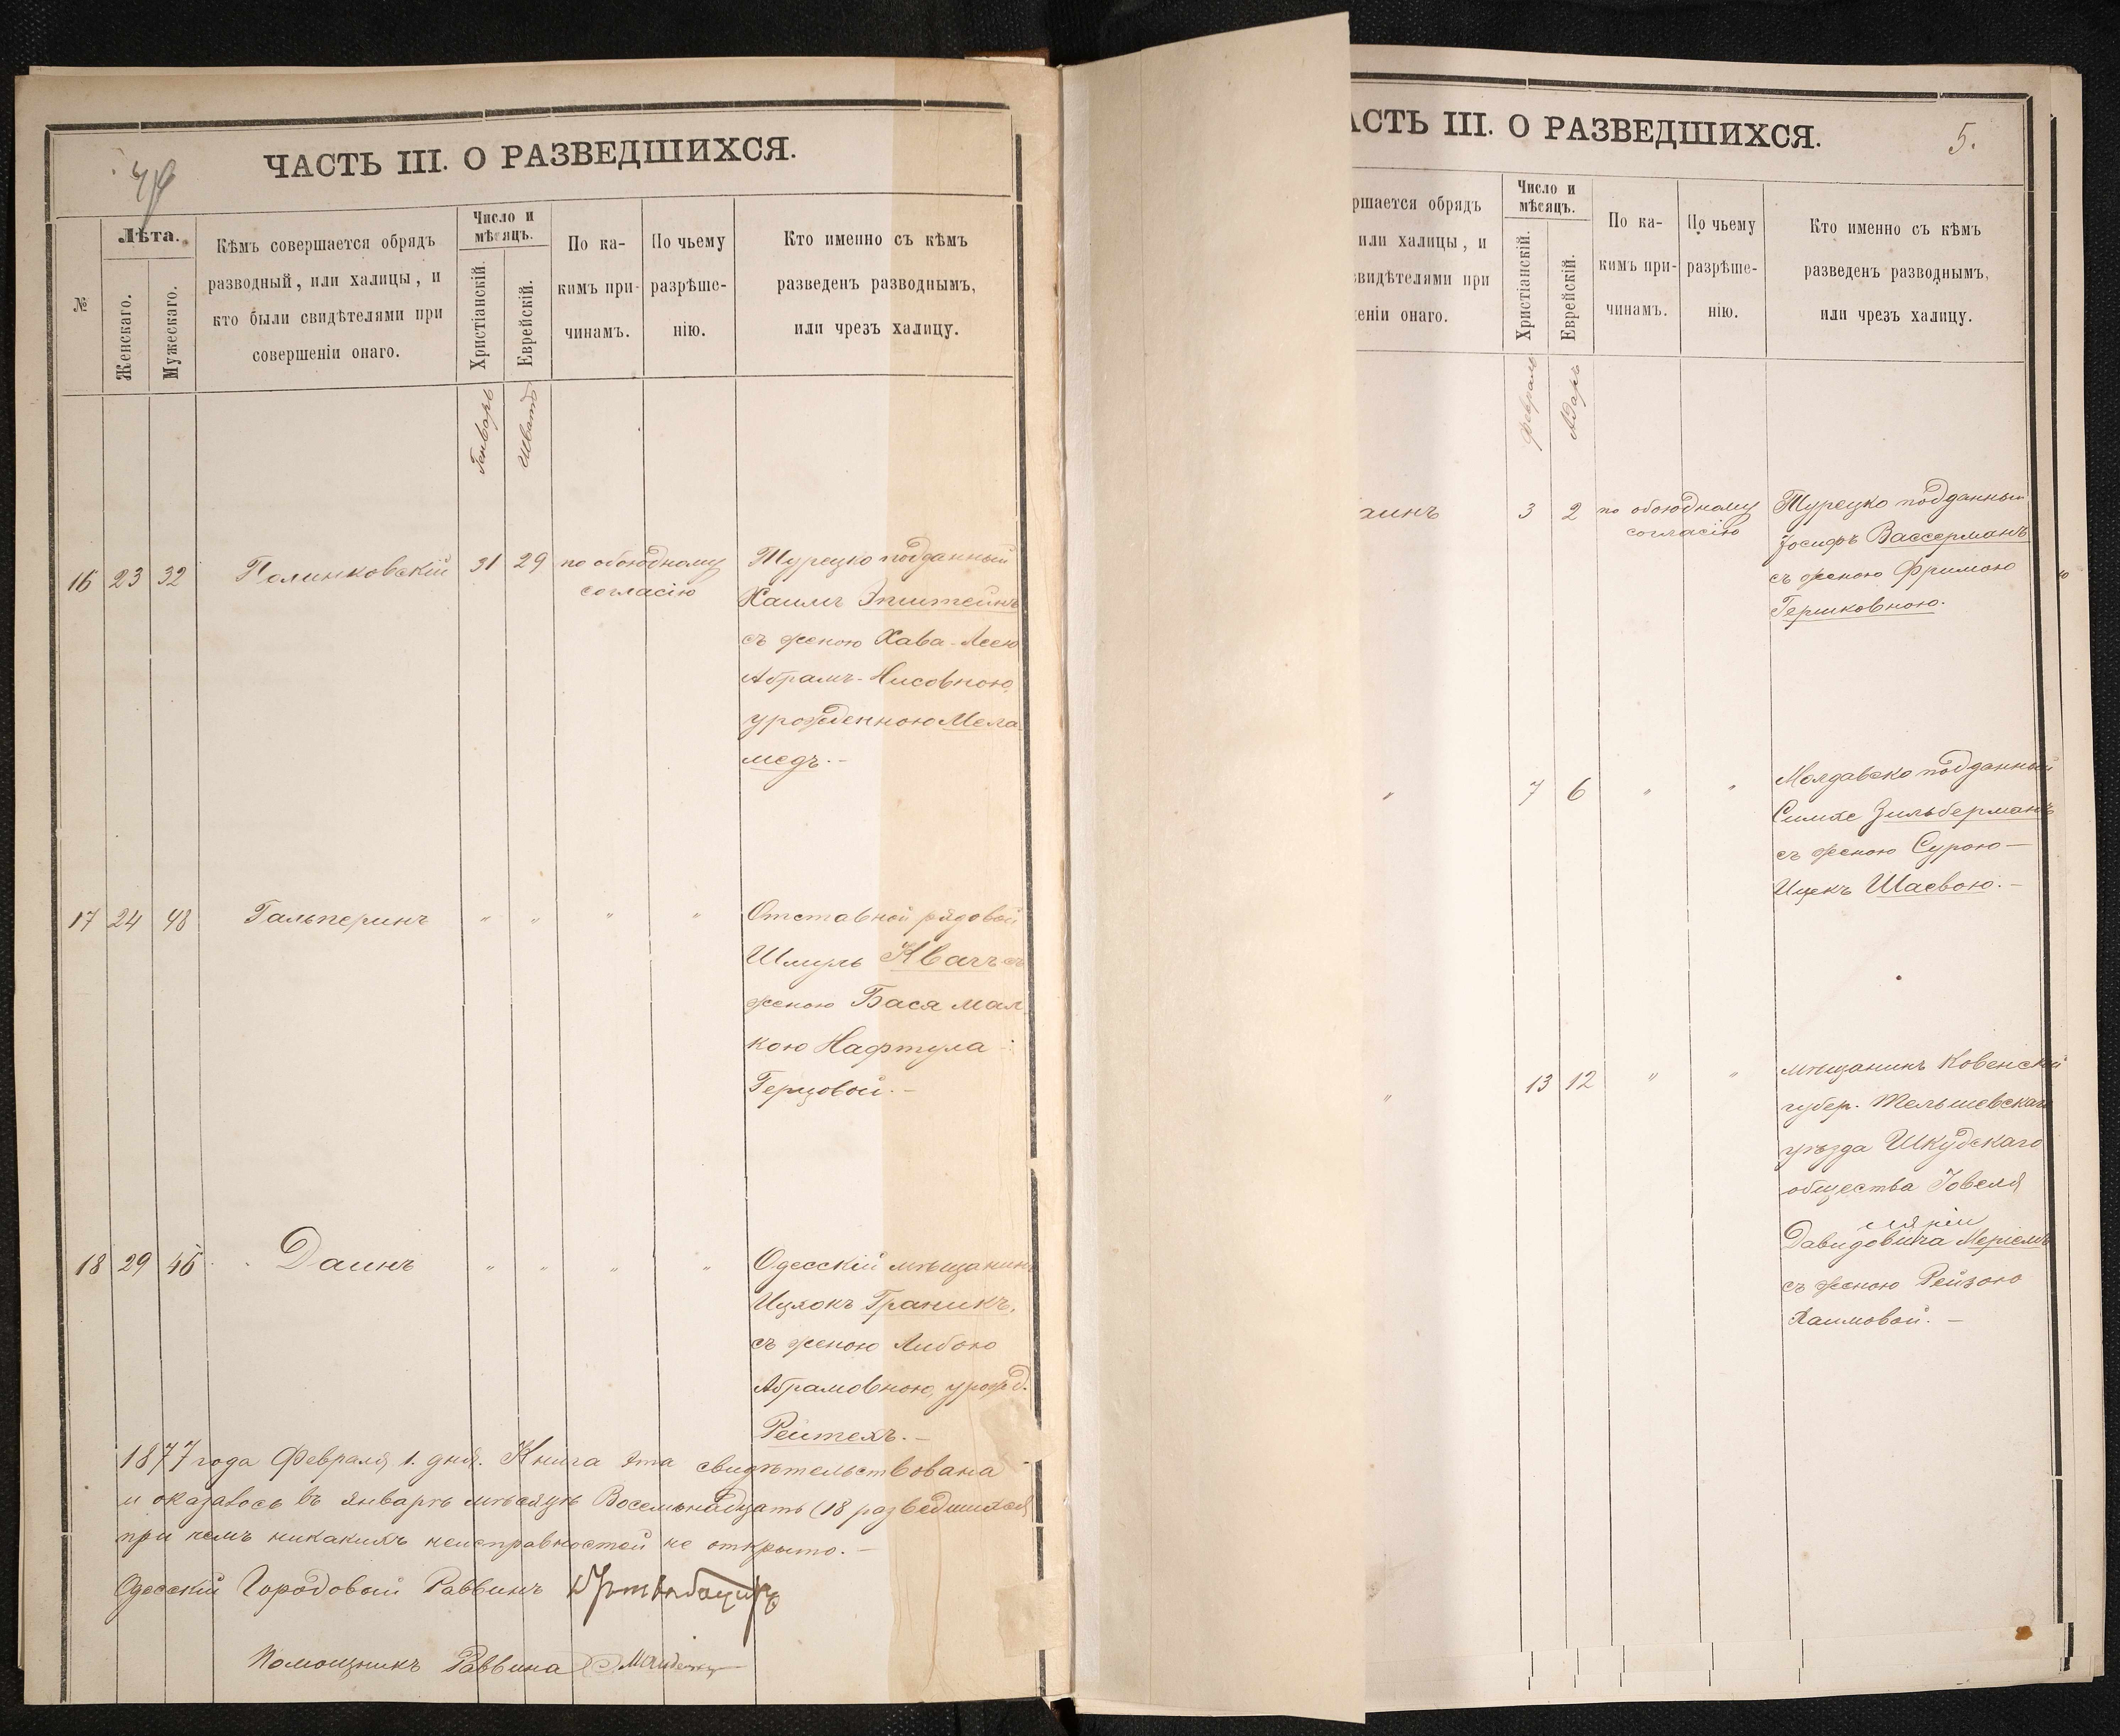 ЧАСТЬ III. О РАЗВЕДШИХСЯ.
№
Лѣта.
Женскаго.
Мужескаго.
Кѣмъ совершается обрядъ
разводный, или халицы, и
кто были свидѣтелями при
совершеніи онаго.
Число и
мѣсяцъ.
Христіанскій.
Еврейскій.
По ка-
кимъ при-
чинамъ.
По чьему
разрѣше-
нію.
Кто именно съ кѣмъ
разведенъ разводнымъ,
или чрезъ халицу.
Генварь
Шватъ
16 23 32 Полинковскій 31 29 по обоюдному
согласію
Турецко подданный
Хаимъ Эпштейнъ
съ женою Хава-Леею
Абрамъ-Нисовною,
урожденною Мела
медъ.-
17 24 48 Гальперинъ " " " "
Отставной рядовой
Шмуль Квачъ съ
женою Бася Мал
кою Нафтула
Герцовой.-
18 29 45 Даинъ " " " "
Одесскій мѣщанинъ
Ицхокъ Граникъ,
съ женою Либою
Абрамовною, урожд.
Рейтехъ.-
1877 года Февраля 1. дня. Книга эта свидѣтельствована
и оказалось въ январѣ мѣсяцѣ Восемьнадцать (18 разведшихся
при чемъ никакихъ неисправностей не открыто.-
Одесскій Городовой Раввинъ
Помощникъ Раввина
АСТЬ III. О РАЗВЕДШИХСЯ.
5.
ршается обрядъ
или халицы, и
свидѣтелями при
еніи онаго.
Число и
мѣсяцъ.
Христіанскій.
Еврейскій.
По ка-
кимъ при-
чинамъ.
По чьему
разрѣше-
нію.
Кто именно съ кѣмъ
разведенъ разводнымъ,
или чрезъ халицу.
Февраль
Адаръ
аинъ 3 2 по обоюдному
согласію
Турецко подданный
Іосифъ Вассерманъ
съ женою Фримою
Гершковною.
" 7 6 " "
Молдавско подданный
Симхе Зильберманъ
съ женою Сурою-
Ицекъ Шаевою.-
" 13 12 " "
мѣщанинъ Ковенской
губер. Тельшевскаго
уѣзда Шкудскаго
общества Іовеля
Давидовича
съ женою Рейзою
Хаимовой.-